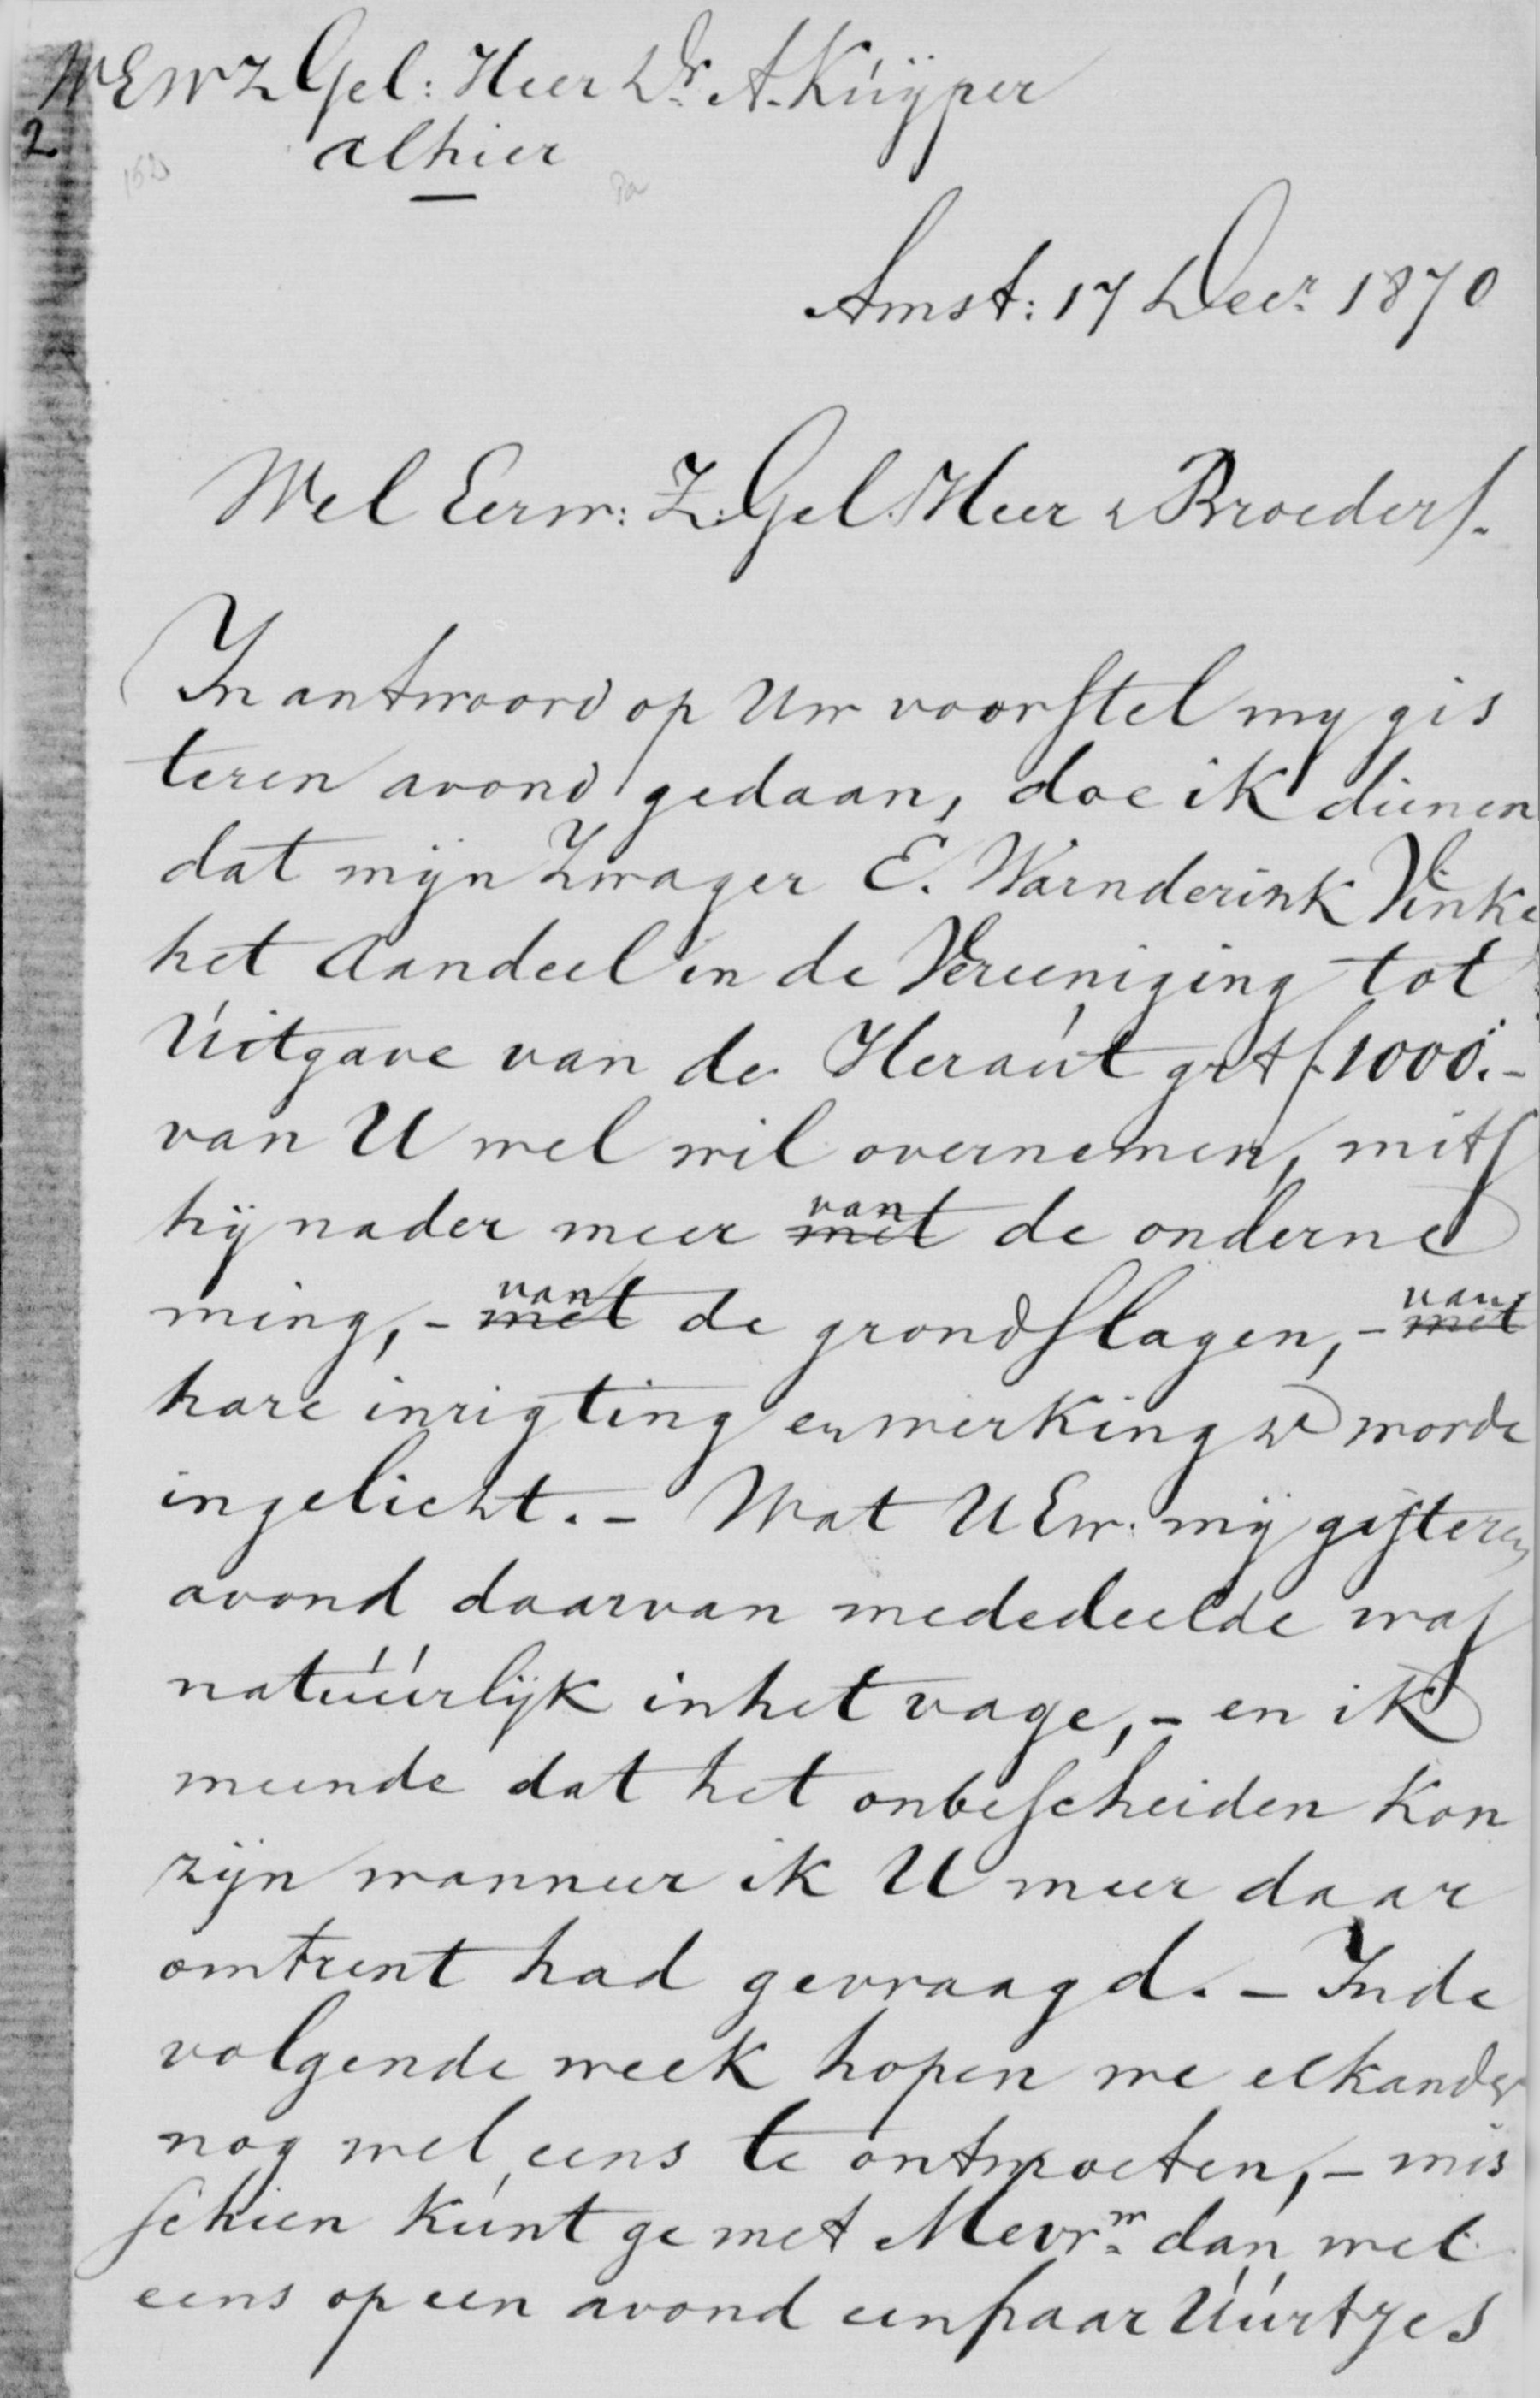 WEWZGel: Heer Dr. A. Kuÿper
2
alhier
Amst: 17 Decr. 1870
Wel Eerw: Z: Gel. Heer & Broeder!.
In antwoord op Uw voorstel my gis
teren avond gedaan, doe ik dienen
dat mijn Zwager E. Warnderink Vinke
het Aandeel in de Vereeniging tot
Uitgave van de Heraut grt f 1000.-
van U wel wil overnemen, mits
hij nader meer ~~met~~ van de onderne
ming, - ~~met~~ van de grondslagen, - ~~met~~ van
hare inrigting en werking worde
ingelicht. - Wat UEw. mij gisteren
avond daarvan mededeelde was
natuurlijk in het vage, - en ik
meende dat het onbescheiden kon
zijn wanneer ik U meer daar
omtrent had gevraagd. - In de
volgende week hopen we elkander
nog wel eens te ontmoeten, - mis
schien kunt ge met Mevrw. dan wel
eens op een avond een paar Uurtjes